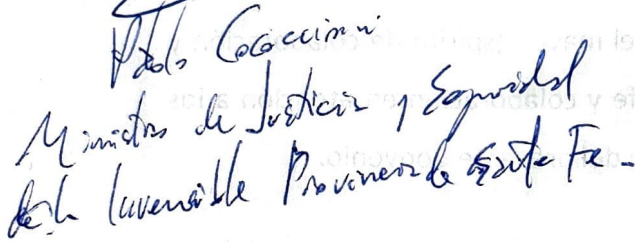 Pablo Cococcioni
Ministro de Justicia y Seguridad
de la Invencible Provincia de Santa Fe-